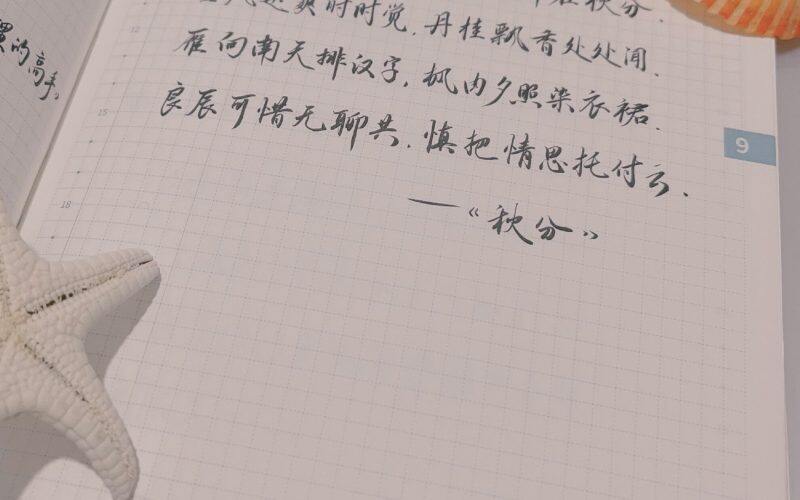 秋分.
爽时时觉,丹桂飘香处处闻.
雁向南天排汉字,枫内夕照染衣裙.
良辰可惜无聊共.慎把情思托付云.
——《秋分》
的高手。
12
15
18
9